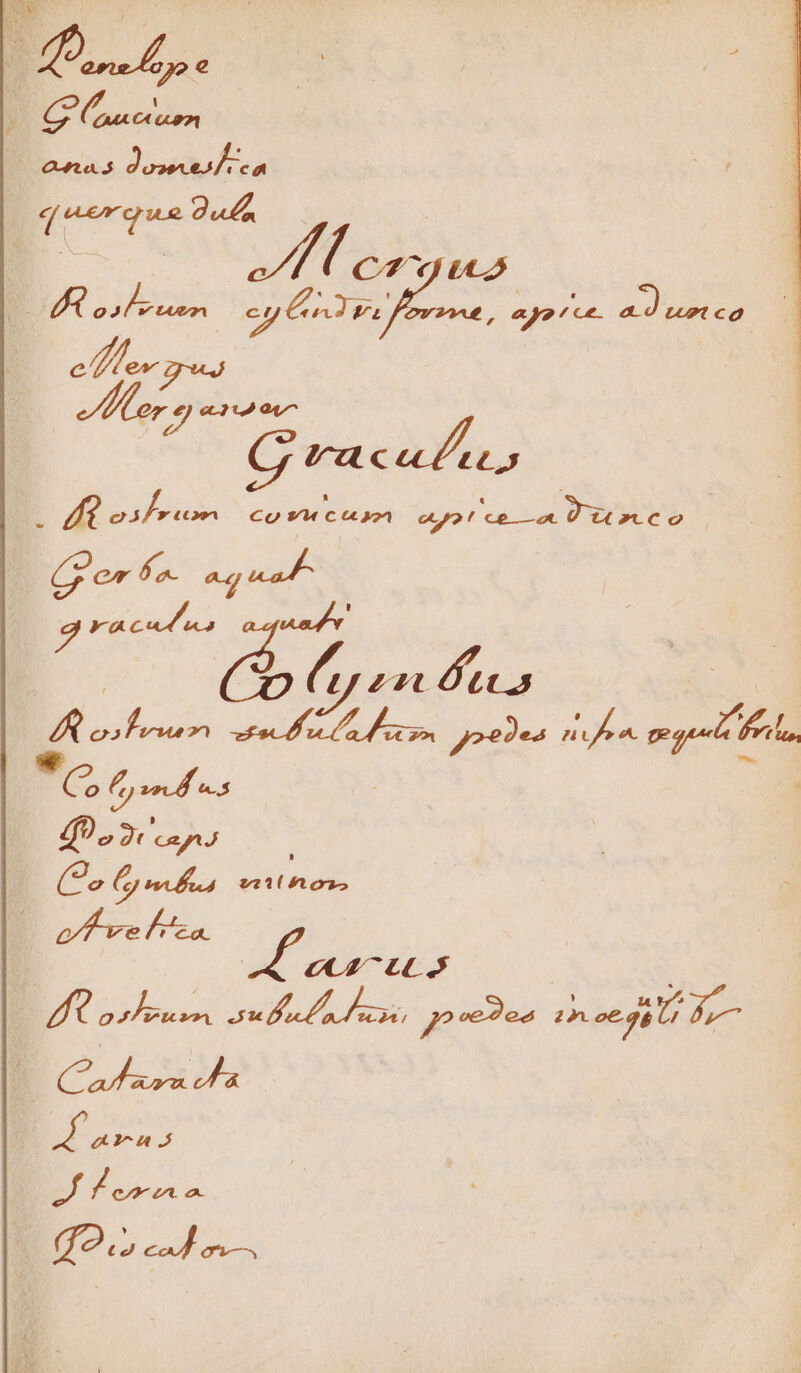 Penelope
Glaucium
anas domestica
querquedula
Mergus
Rostrum cylindriforme, apice adunco
Mergus
Merganser
Graculus
Rostrum conicum apice adunco
Gerba aquat
graculus aquati
Colymbus
Rostrum subulatum pedes infra aequilibrium
Colymbus
Podiceps
Colymbus minor
Arctica
Larus
Rostrum subulatum, poedes in oequilibr
Cataracta
Larus
Sterna
Piscator